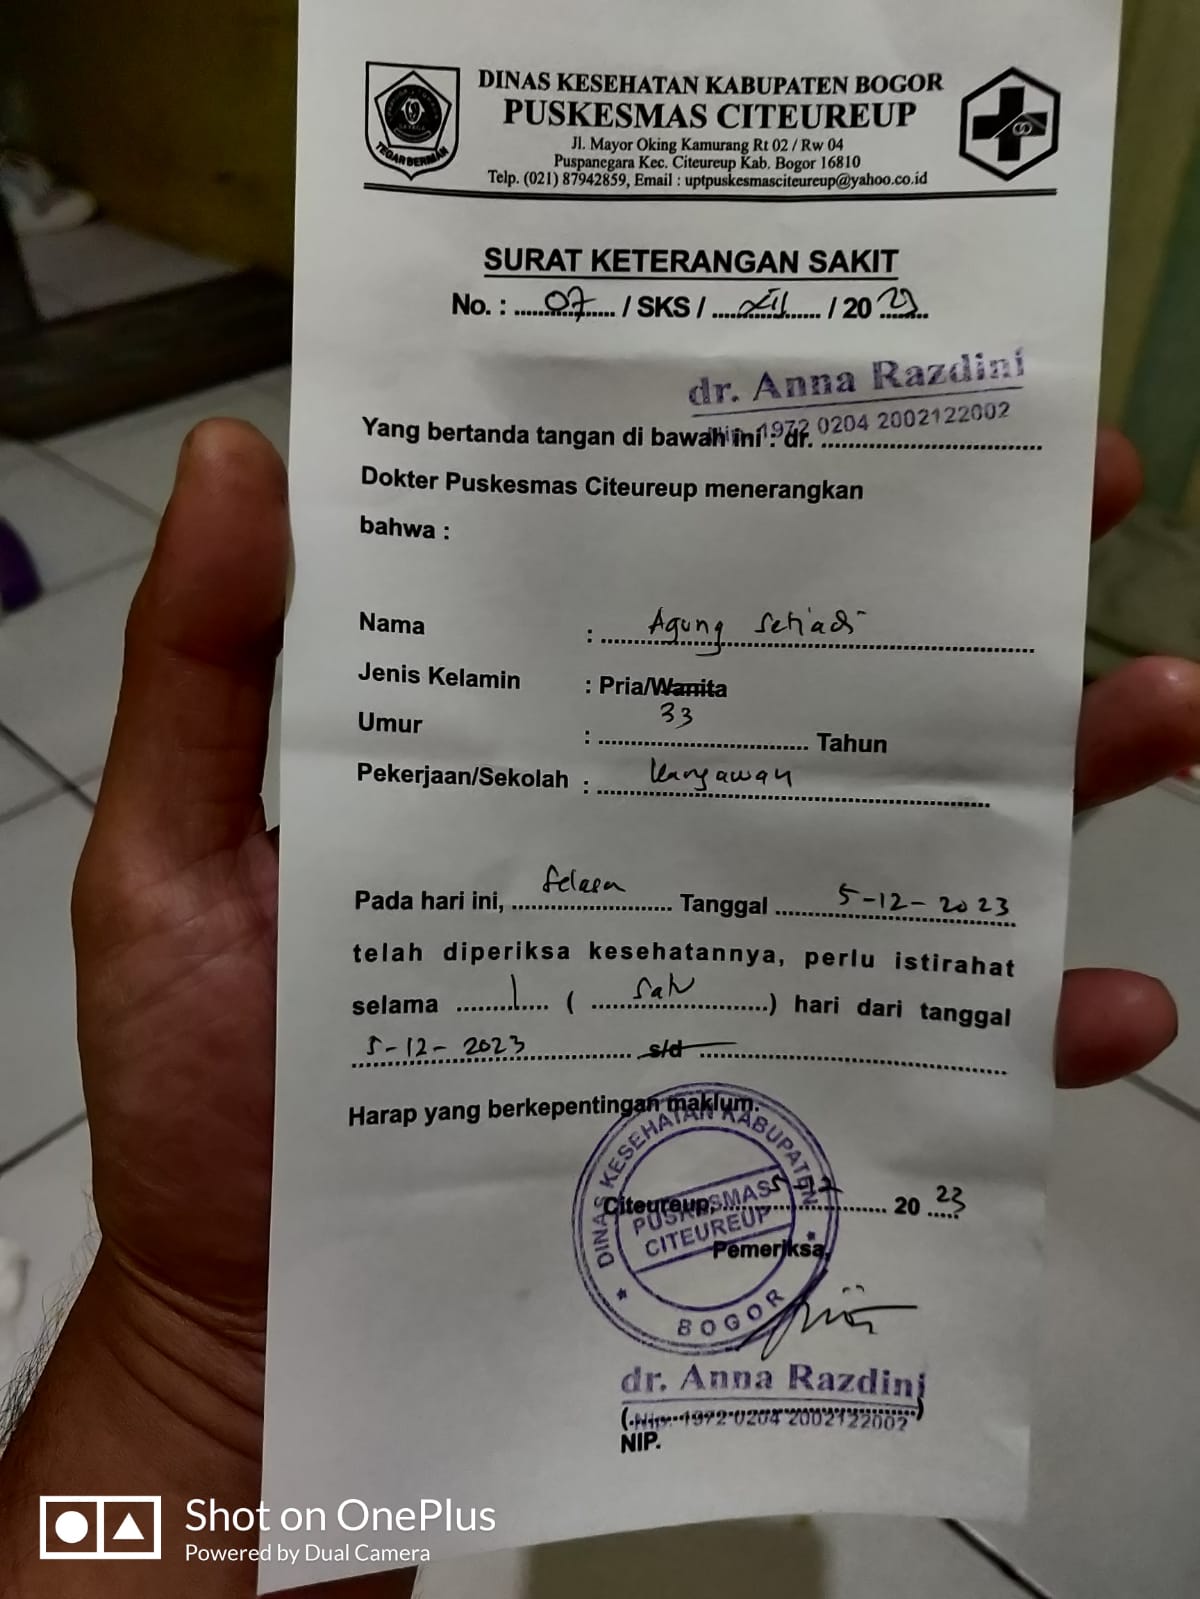 DINAS KESEHATAN KABUPATEN BOGOR
PUSKESMAS CITEUREUP
Jl. Mayor Oking Kamurang Rt 02 / Rw 04
Puspanegara Kec. Citeureup Kab. Bogor 16810
Telp. (021) 87942859, Email : uptpuskesmasciteureup@yahoo.co.id
TEGAR BERIMAN
SURAT KETERANGAN SAKIT
No. : 07 / SKS / XII / 2023
dr. Anna Razdini
Nip. 1972 0204 2002122002
Yang bertanda tangan di bawah ini : dr.
Dokter Puskesmas Citeureup menerangkan
bahwa :
Nama : Agung Setiadi
Jenis Kelamin : Pria/Wanita
Umur : 33 Tahun
Pekerjaan/Sekolah : Karyawan
Pada hari ini, Selasa Tanggal 5-12-2023
telah diperiksa kesehatannya, perlu istirahat
selama 1 ( Satu ) hari dari tanggal
5-12-2023 s/d
Harap yang berkepentingan maklum.
DINAS KESEHATAN KABUPATEN
PUSKESMAS
CITEUREUP
BOGOR
Citeureup, 5-12 2023
Pemeriksa,
dr. Anna Razdini
(Nip. 1972 0204 2002122002)
NIP.
Shot on OnePlus
Powered by Dual Camera